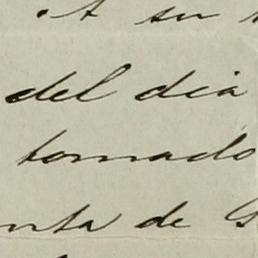 su
del dia
tomado
nta de